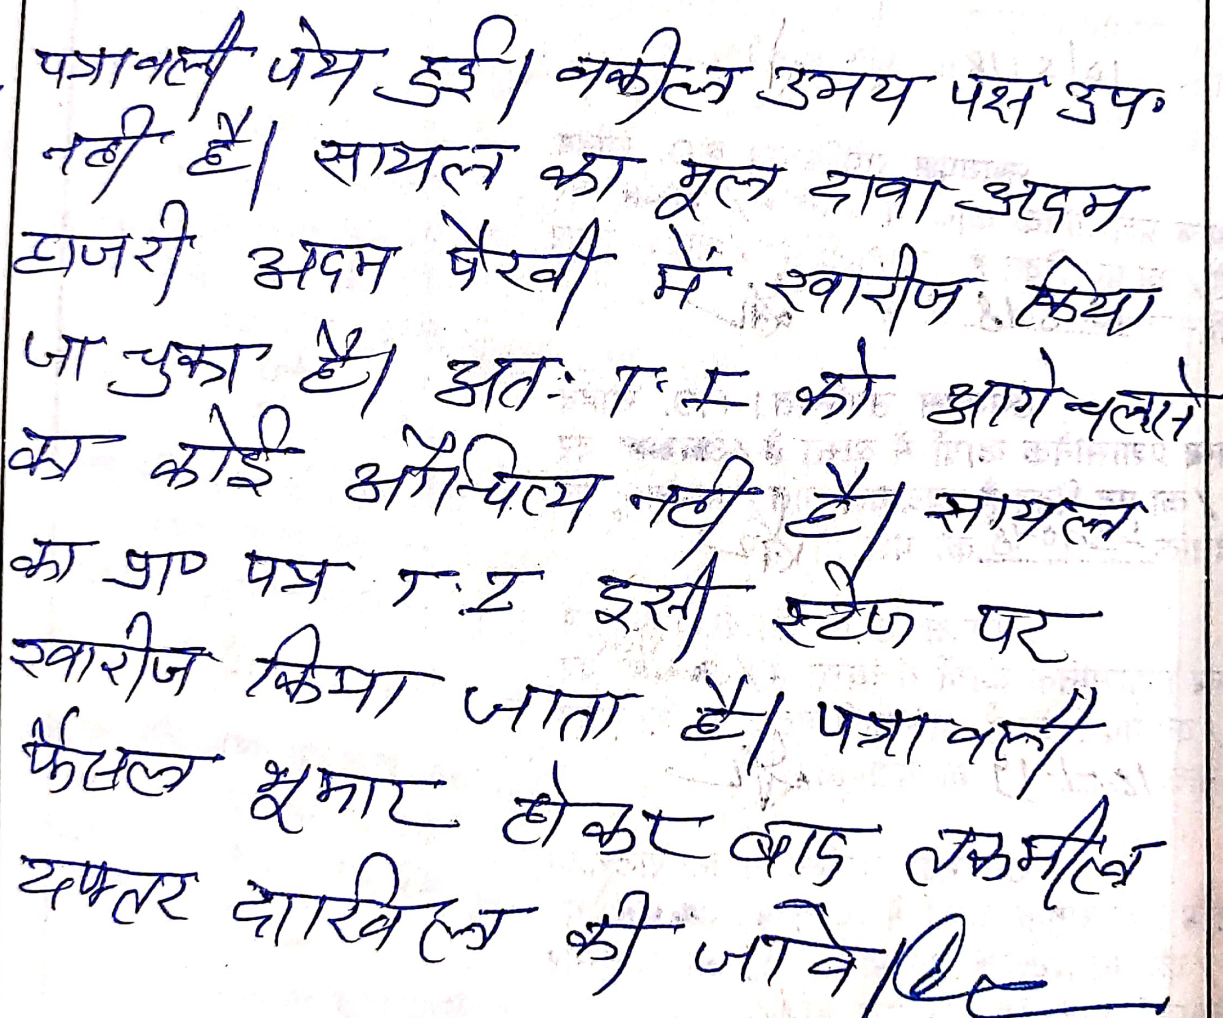 पत्रावली पेश हुई। वकील उभय पक्ष उप॰
नही है। सायल का मूल दावा अदम
हाजरी अदम पैरवी में खारीज किया
जा चुका है। अतः T.I को आगे चलाने
का कोई औचित्य नही है। सायल
का प्रा० पत्र T.I इसी स्टेज पर
खारीज किया जाता है। पत्रावली
फैसल शूमार होकर बाद तकमील
दफ्तर दाखिल की जावे।